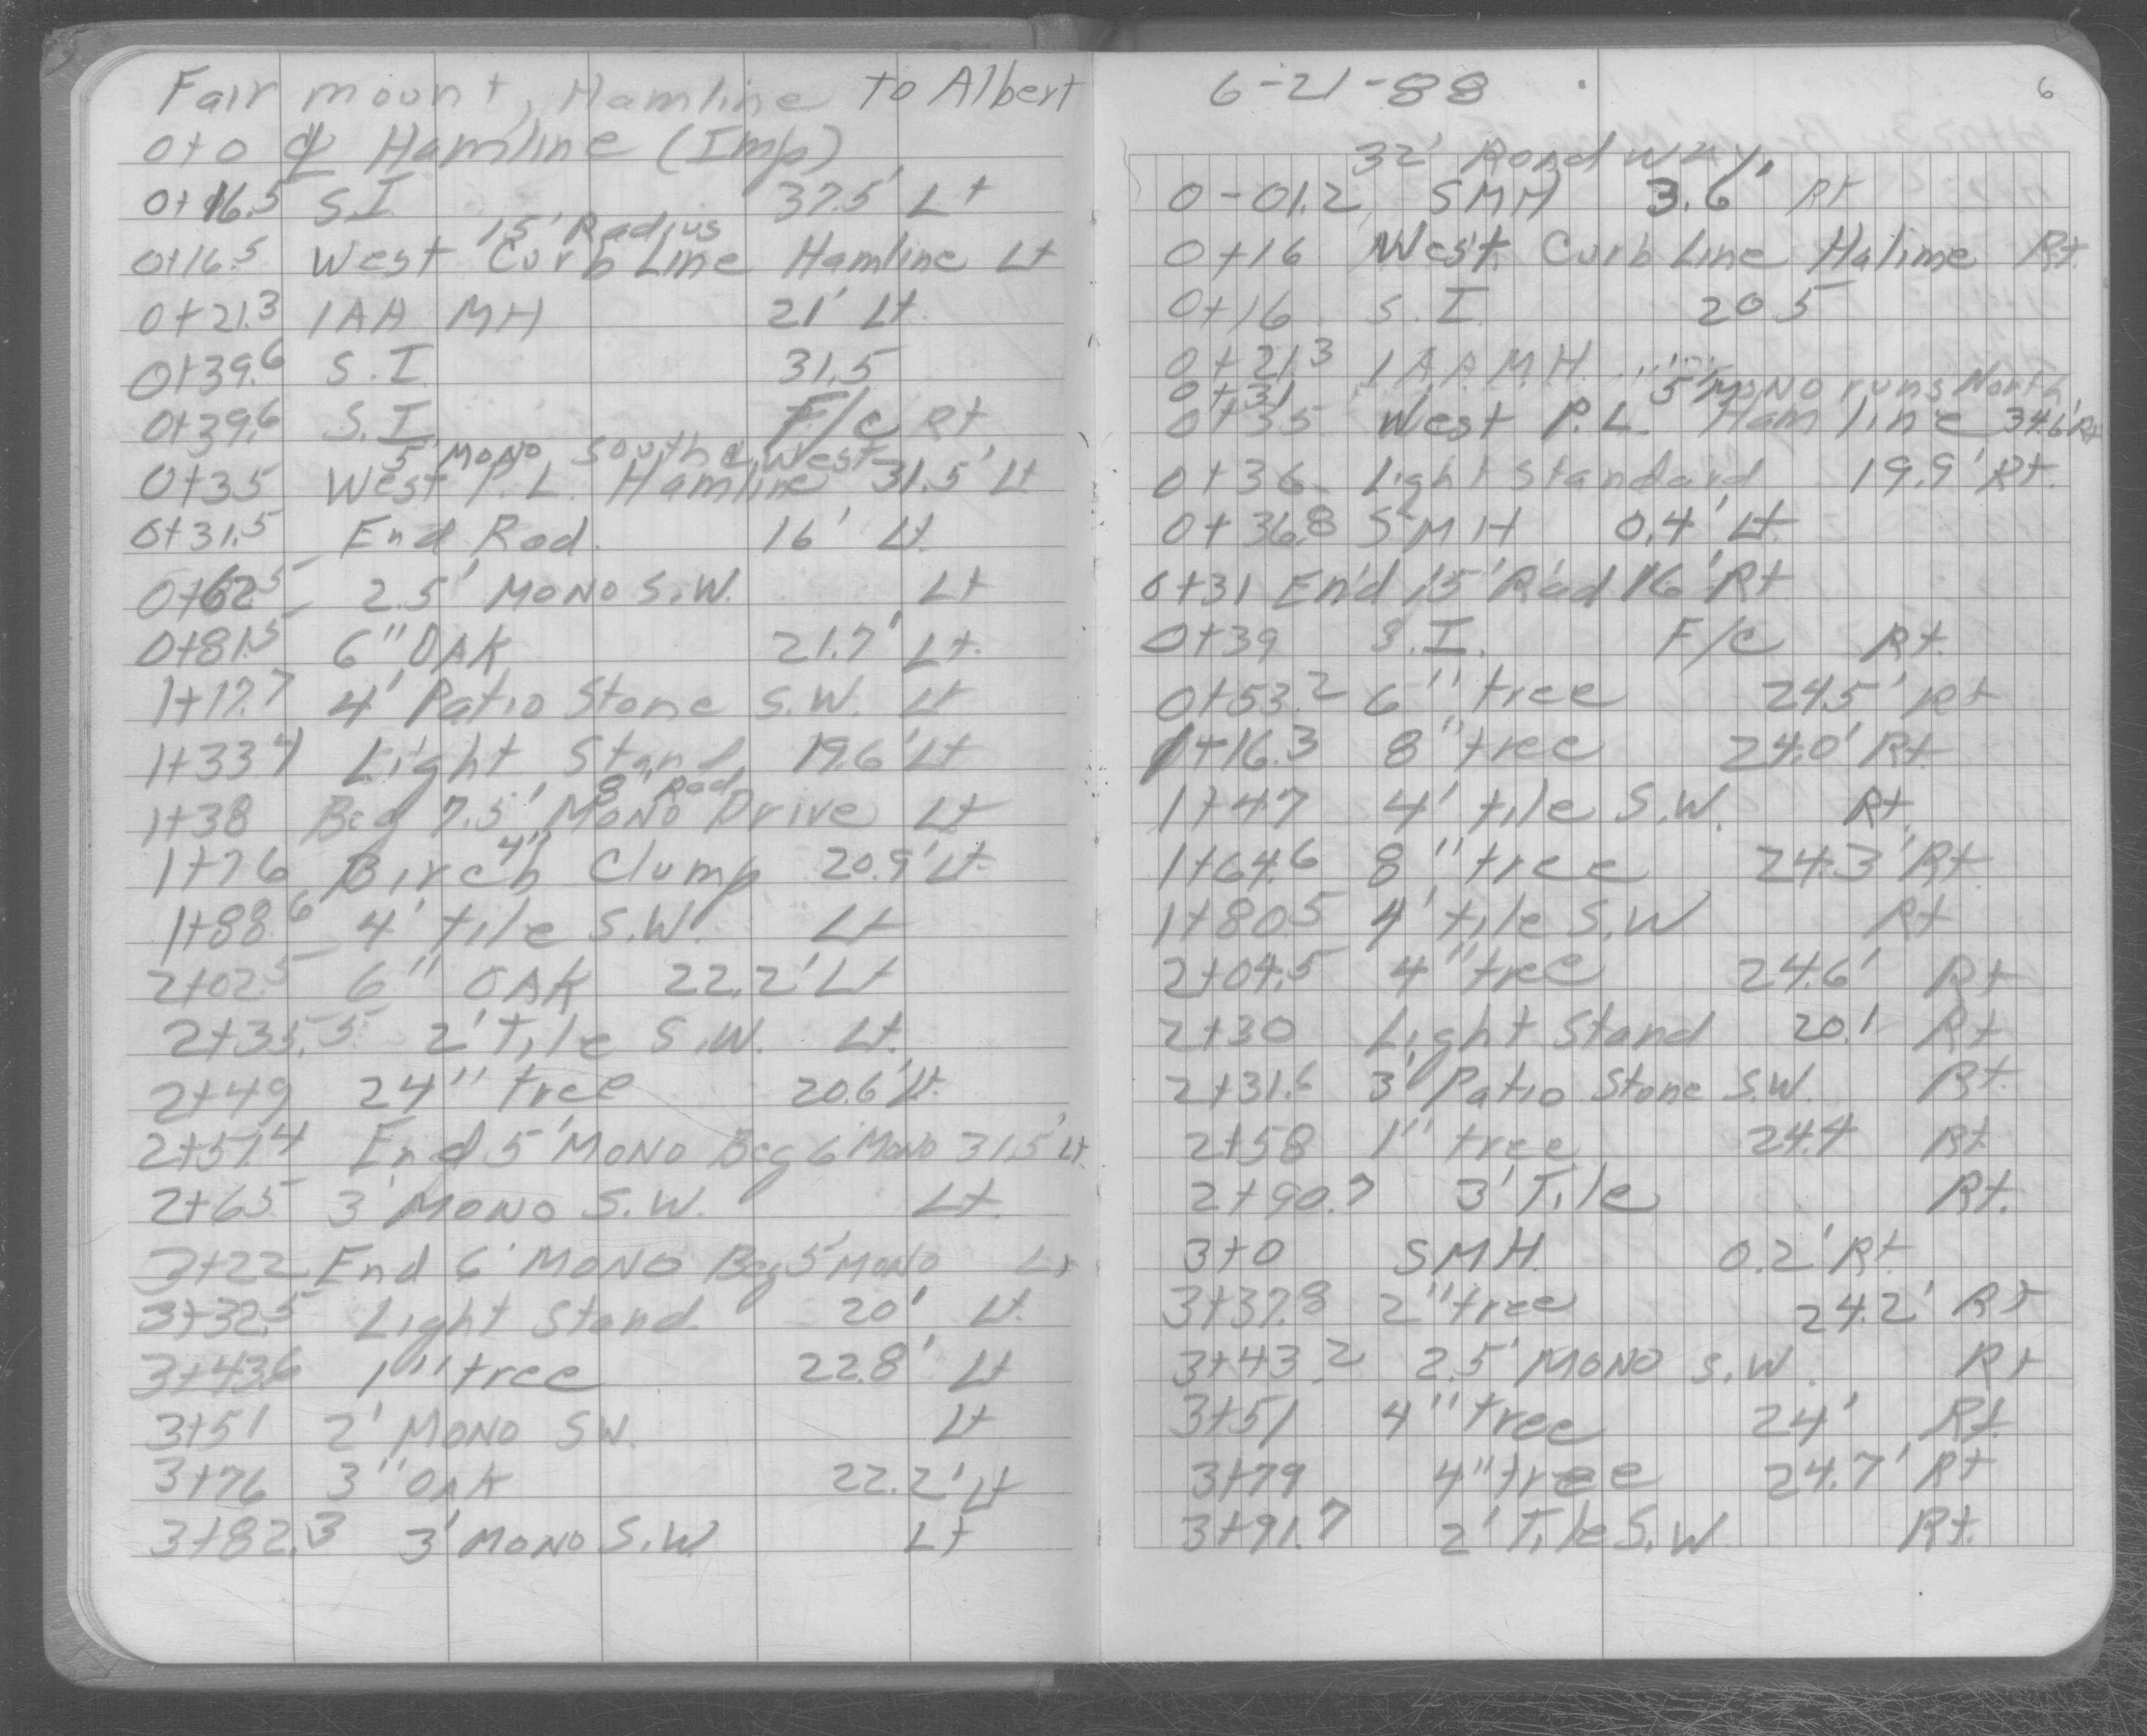 Fairmount, Hamline to Albert
0+0 ℄ Hamline (Imp)
0+16.5 S.I 37.5' Lt
15' Radius
0+16.5 West Curb Line Hamline Lt
0+21.3 1AA MH 21' Lt.
0+39.6 S.I 31.5
0+39.6 S.I F/c Rt
5' MONO South & West
0+35 West P.L. Hamline 31.5' Lt
0+31.5 End Rad. 16' Lt.
0+62.5 2.5' MONO S.W. Lt
0+81.5 6" OAK 21.7' Lt.
1+17.7 4' Patio Stone S.W. Lt
1+33.4 Light Stand 19.6' Lt
8' Rad
1+38 Beg 7.5' MONO Drive Lt
4"
1+76 Birch Clump 20.9' Lt
1+88.6 4' tile S.W. Lt
2+02.5 6" OAK 22.2' Lt
2+35.5 2' Tile S.W. Lt.
2+49 24" tree 20.6' Lt.
2+57.4 End 5' MONO Beg 6' MONO 31.5' Lt.
2+65 3' MONO S.W. Lt.
3+22 End 6' MONO Beg 5' MONO Lt
3+32.5 Light Stand 20' Lt.
3+43.6 1" tree 22.8' Lt
3+51 2' MONO SW. Lt
3+76 3" OAK 22.2' Lt
3+82.3 3' MONO S.W Lt
6-21-88 6
32' Roadway
0-01.2 SMH 3.6' Rt
0+16 West Curb Line Halime Rt.
0+16 S.I. 20.5
0+21.3 1AA M.H.
0+31 5' MONO runs North
0+35 West P.L. Hamline 34.6' Rt
0+36 Light Standard 19.9' Rt.
0+36.8 SMH 0.4' Lt.
0+31 End 15' Rad 16' Rt
0+39 S.I. F/c Rt.
0+53.2 6" tree 24.5' Rt
1+16.3 8" tree 24.0' Rt.
1+47 4' tile S.W. Rt.
1+64.6 8" tree 24.3' Rt.
1+80.5 4' tile S.W Rt
2+04.5 4" tree 24.6' Rt
2+30 Light Stand 20.1 Rt
2+31.6 3' Patio Stone S.W. Rt.
2+58 1" tree 24.4 Rt
2+90.7 3' Tile Rt.
3+0 SMH. 0.2' Rt.
3+37.8 2" tree 24.2' Rt
3+43.2 2.5' MONO S.W. Rt
3+51 4" tree 24' Rt.
3+79 4" tree 24.7' Rt
3+91.7 2' Tile S.W Rt.